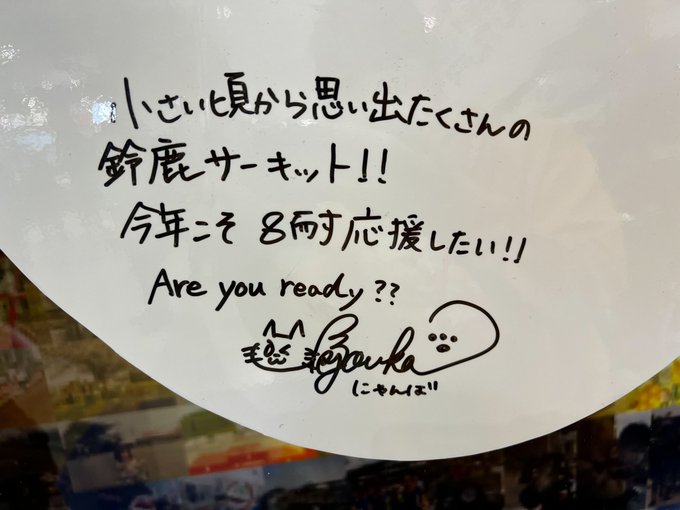 小さい頃から思い出たくさんの
鈴鹿サーキット!!
今年こそ 8耐応援したい!!
Are you ready??
Kyouka
にゃんば